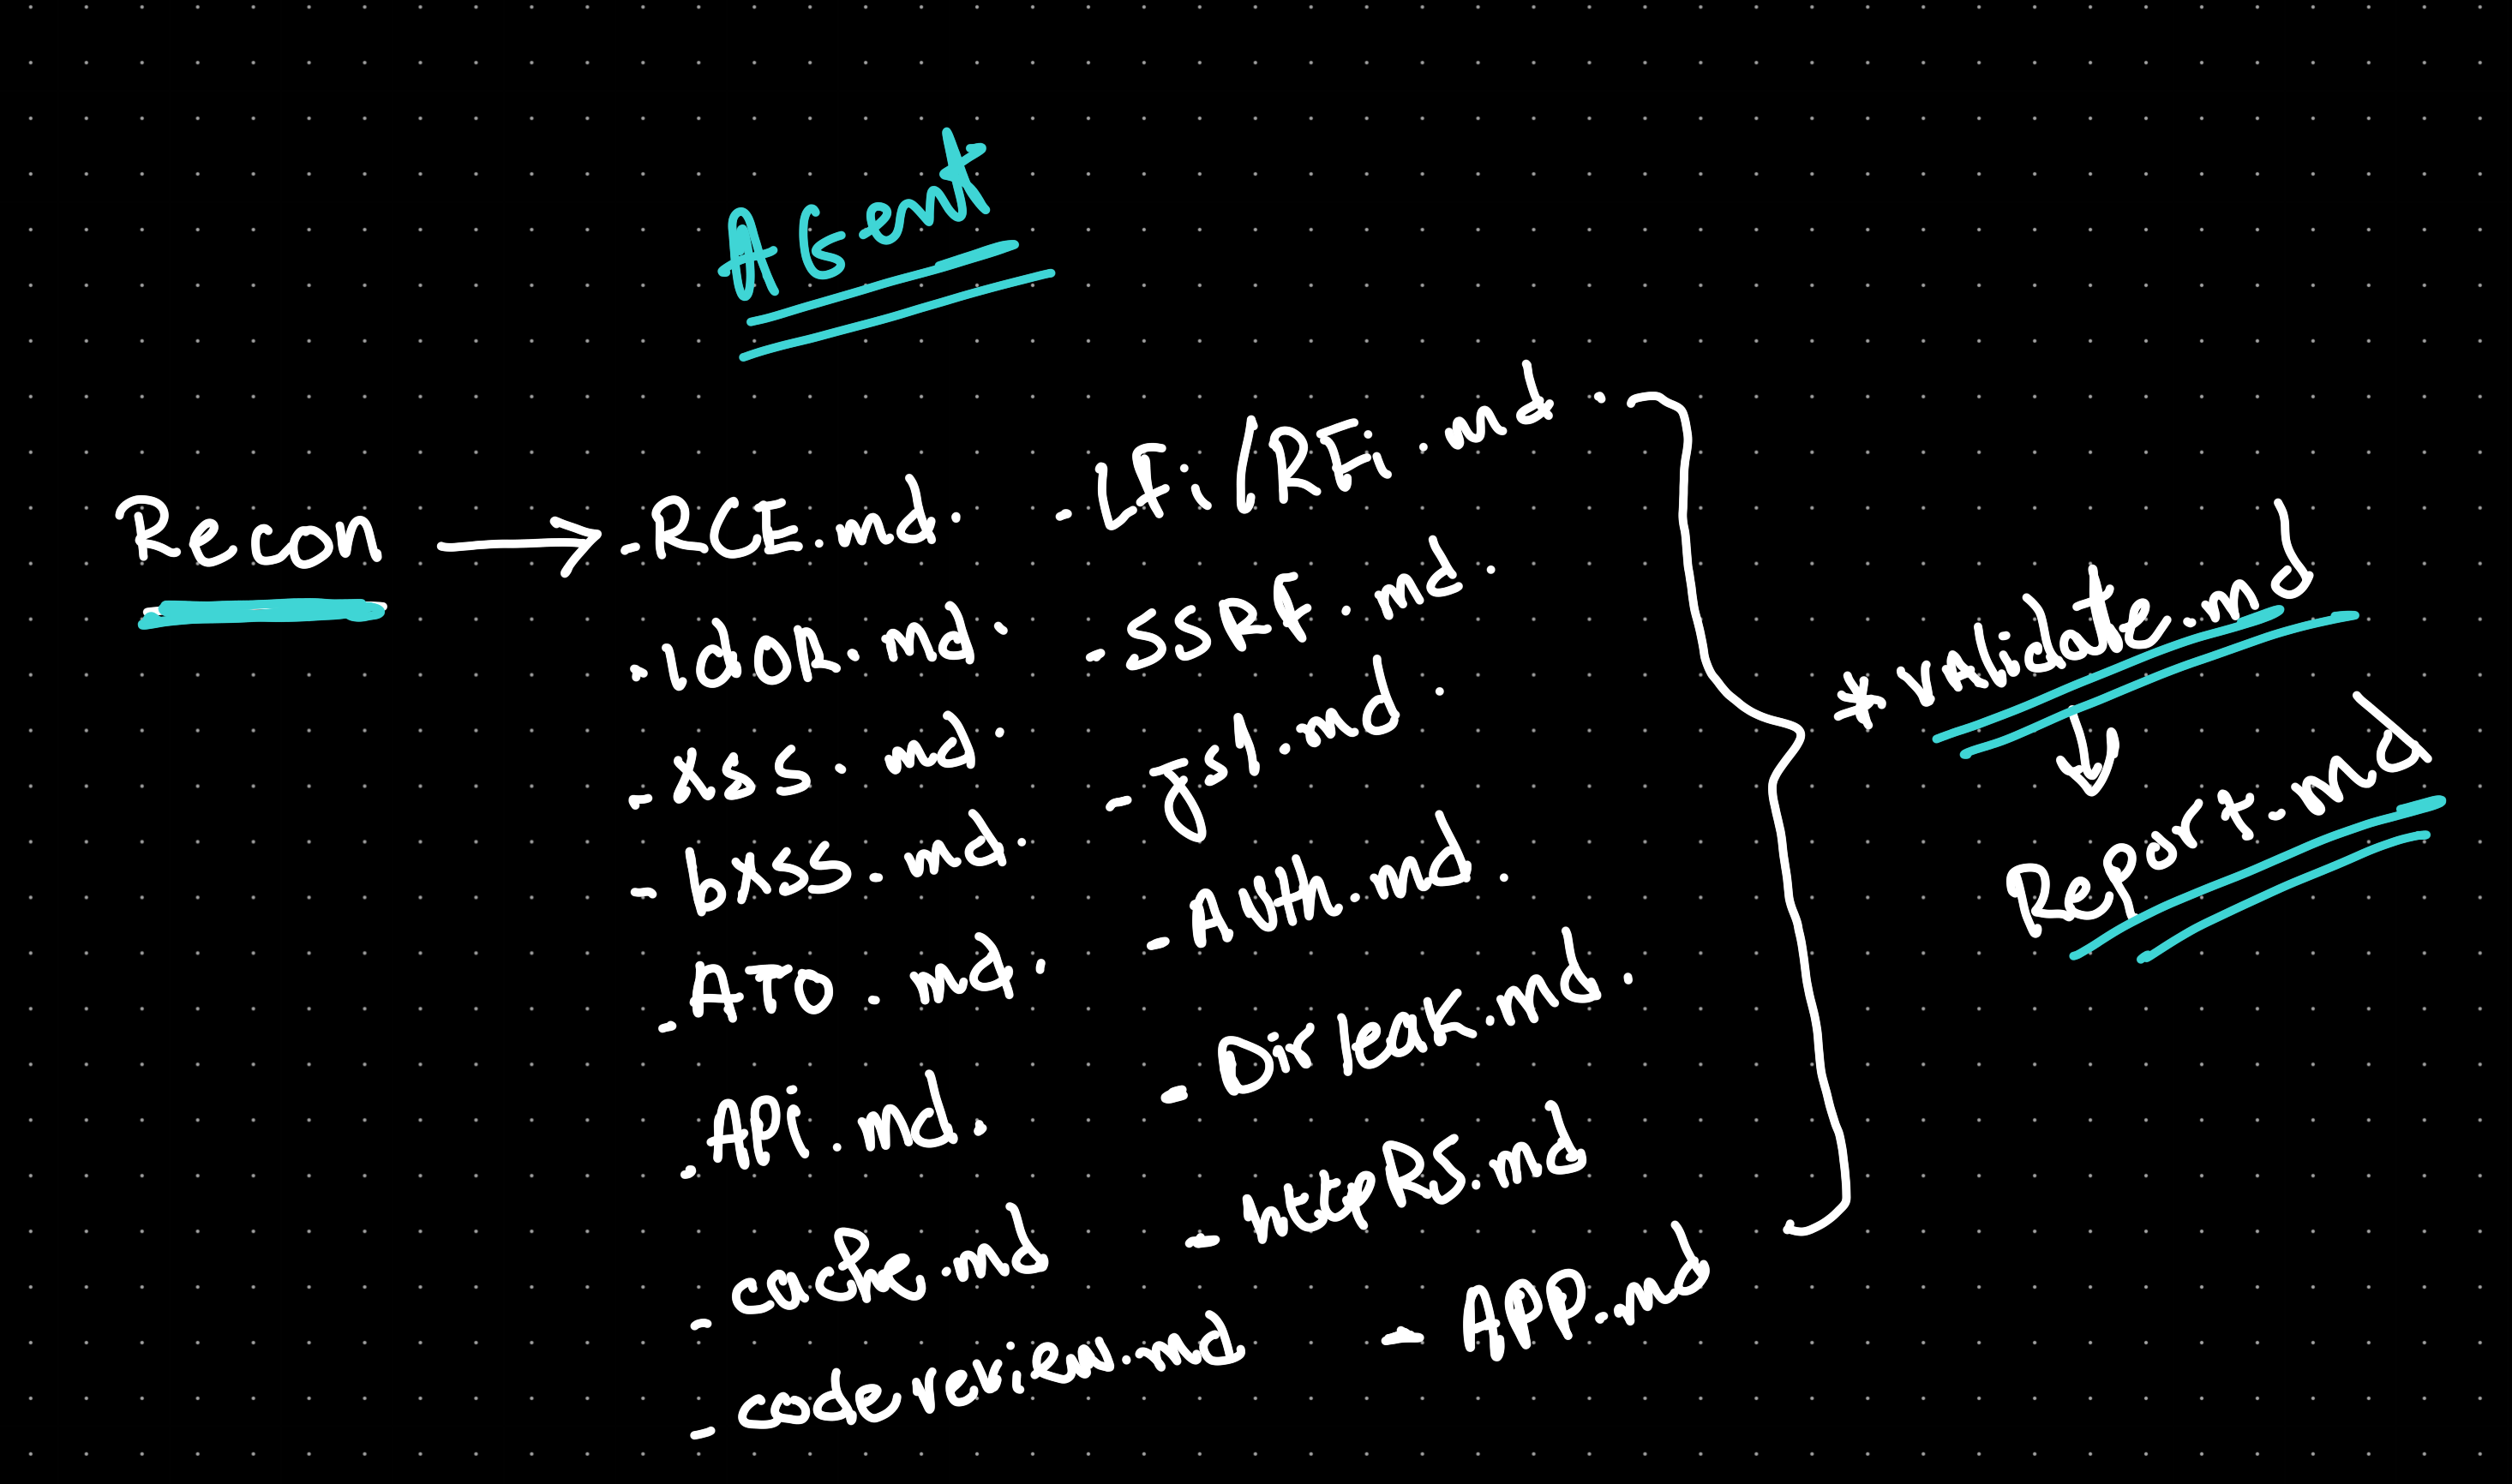 AGent
Recon → - RCE.md.
- IdOR.md.
- Xss.md.
- bXSS.md.
- ATO.md.
- APi.md.
- cache.md
- code review.md
- Lfi/RFi.md.
- SSRF.md.
- AUth.md.
- Dir leak.md.
- httpRS.md
- APP.md
* vAlidate.md
↓
RePort.md